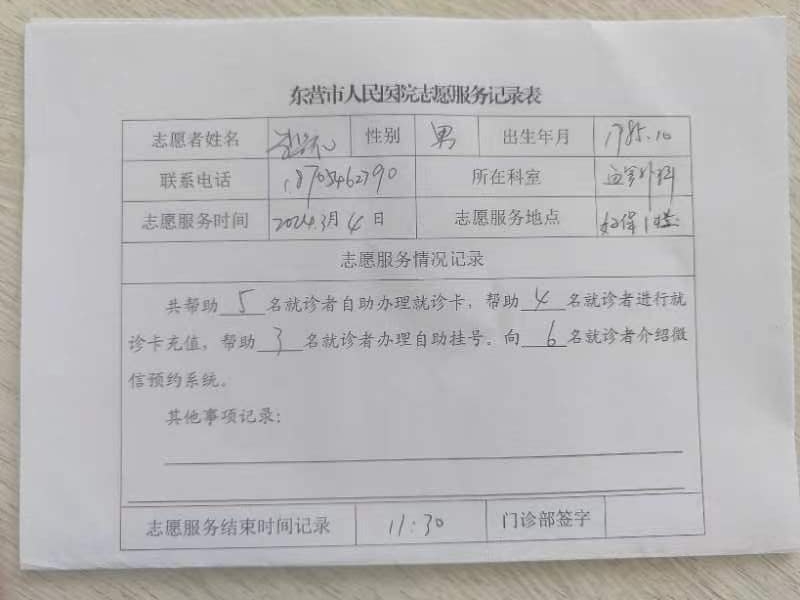 东营市人民医院志愿服务记录表
志愿者姓名 性别 男 出生年月 1985.10
联系电话 18705462790 所在科室 外科
志愿服务时间 2024.3月4日 志愿服务地点 妇保1楼
志愿服务情况记录
共帮助5名就诊者自助办理就诊卡，帮助4名就诊者进行就
诊卡充值，帮助3名就诊者办理自助挂号。向6名就诊者介绍微
信预约系统。
其他事项记录：
志愿服务结束时间记录 11:30 门诊部签字